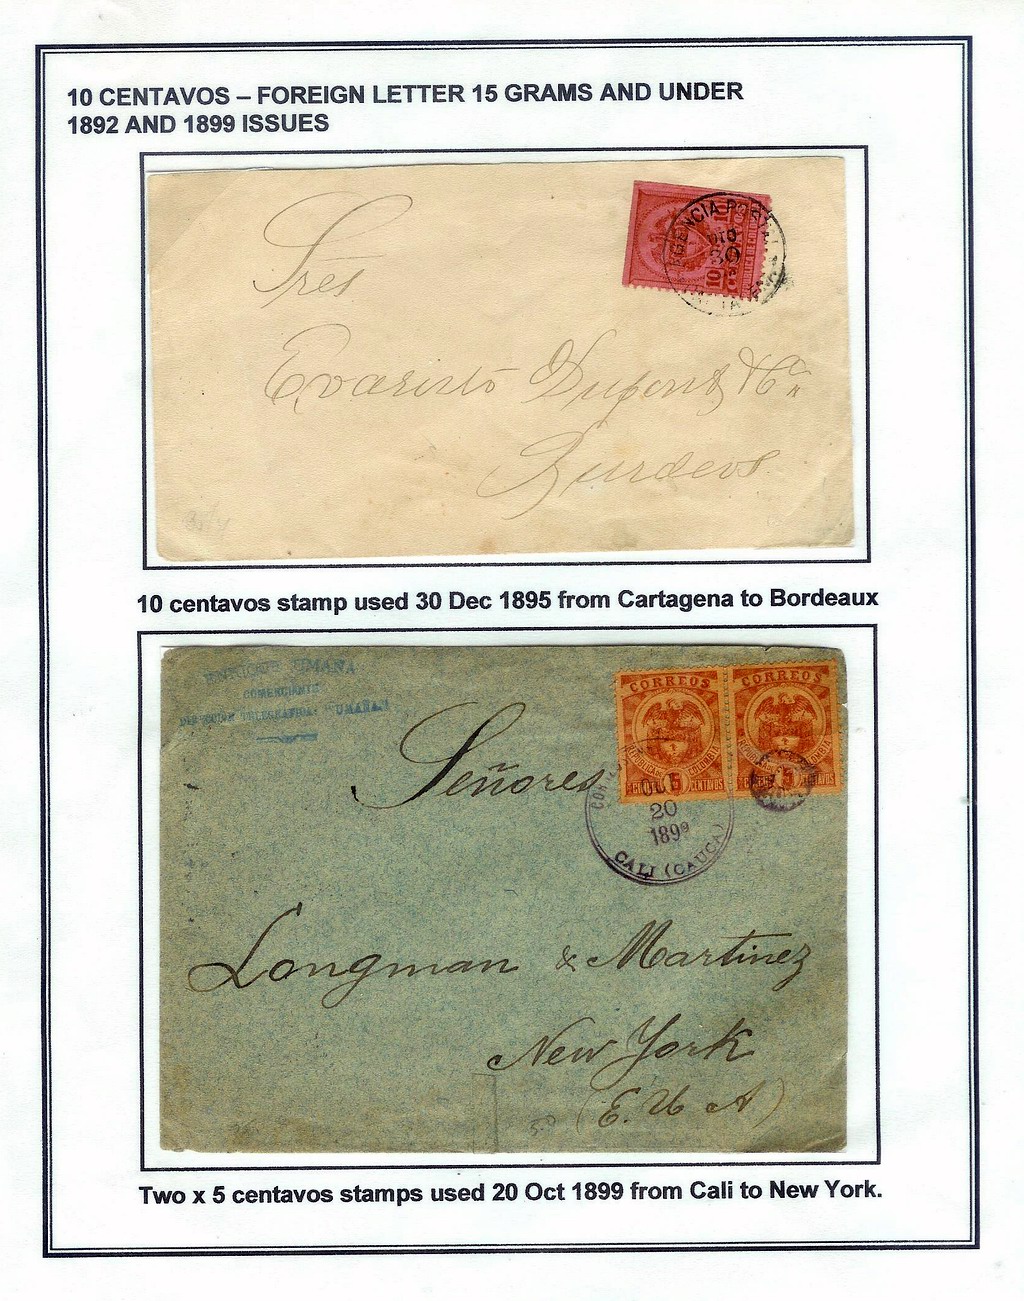 10 CENTAVOS – FOREIGN LETTER 15 GRAMS AND UNDER
1892 AND 1899 ISSUES
AGENCIA POSTAL
30
10
Srés
Evaristo Dupont & Ca
Burdeos
10 centavos stamp used 30 Dec 1895 from Cartagena to Bordeaux
ENRIQUE UMAÑA
COMERCIANTE
DIRECCIÓN TELEGRÁFICA: "UMAÑA"
CORREOS CORREOS
REPUBLICA COLOMBIA REPUBLICA COLOMBIA
5 CENTAVOS 5 CENTAVOS
Señores
20
1899
CALI (CAUCA)
Longman & Martinez
New York
(E. U A)
Two x 5 centavos stamps used 20 Oct 1899 from Cali to New York.